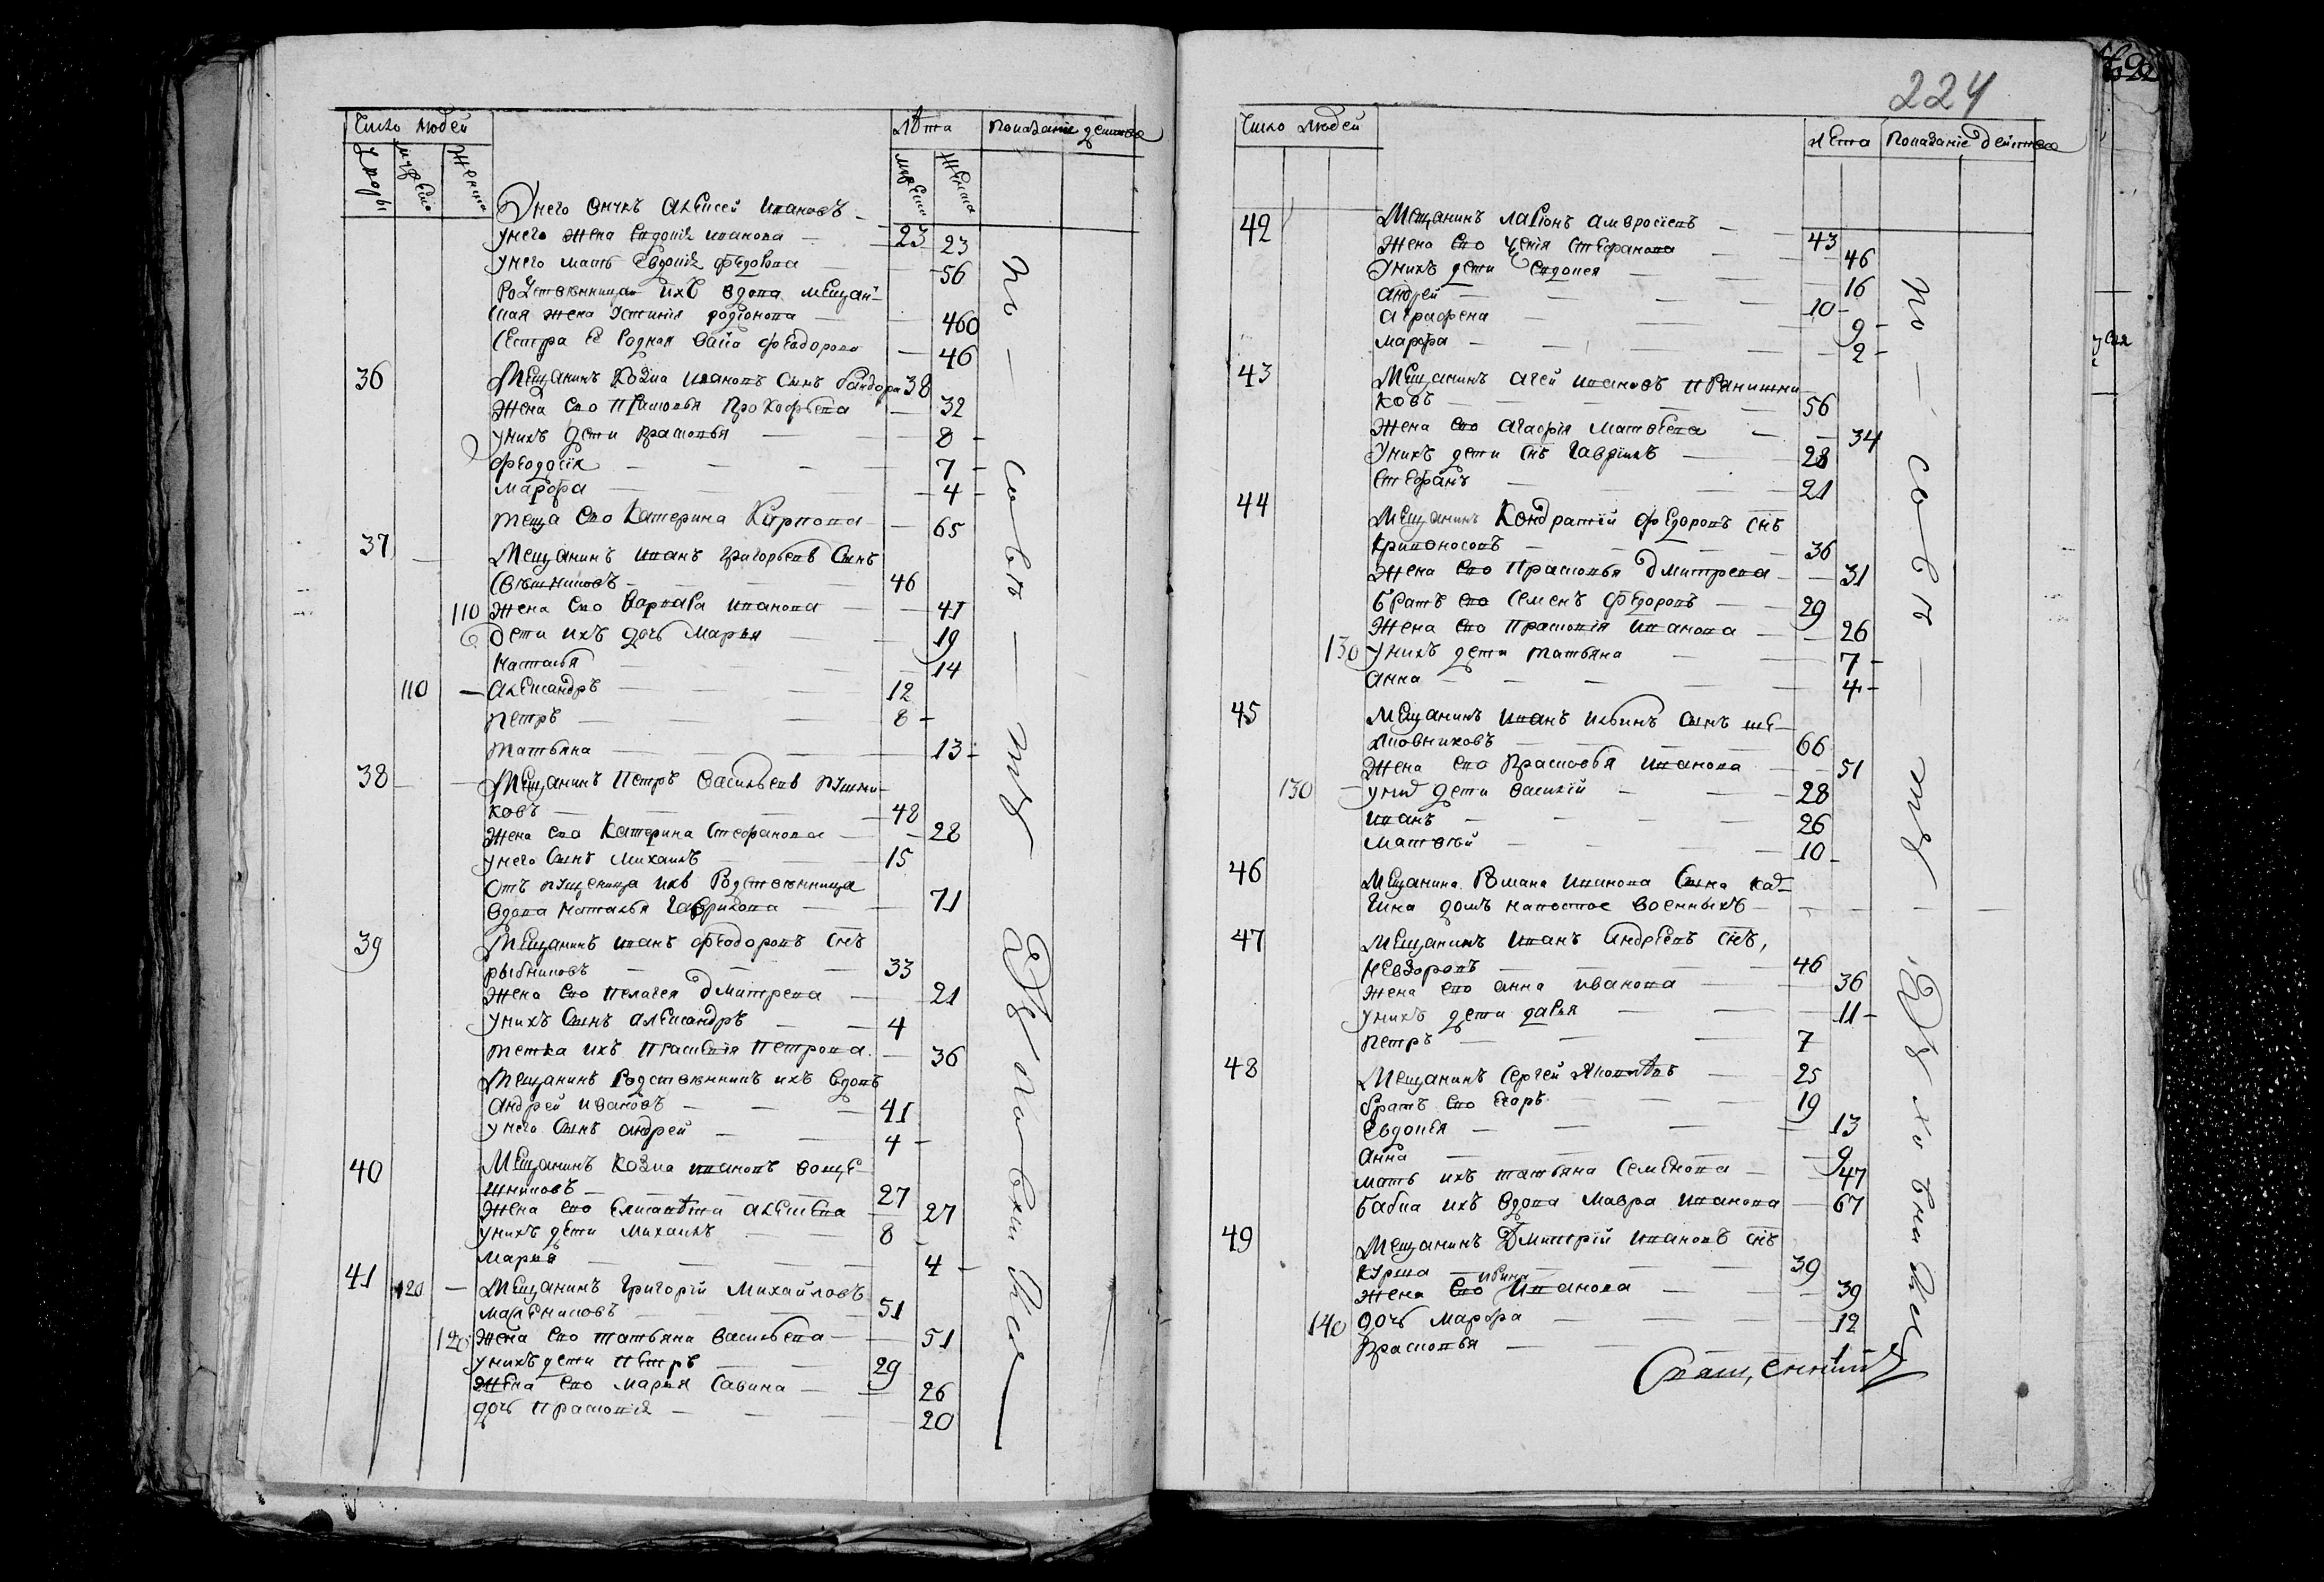 Число людей
Лѣта
Показание действа
Дворы
Мужеска
Женска
Мужеска
Женска
У него внукъ Алексей Ивановъ 23
У него жена Евдокия Иванова 23
У него мать Евдокия Федорова 56
Родственница ихъ вдова мещан-
ская жена Устиния Родионова 460
Сестра ее родная Васа Феодорова 46
36 Мещанинъ Козма Ивановъ сынъ 38
Жена ево Прасковья Прокофьева 32
У нихъ дети Прасковья 8
Феодосия 7
Марфа 4
Теща ево Катерина Карпова 65
37 Мещанинъ Иванъ Григорьевъ сынъ
Свешниковъ 46
110 Жена ево Варвара Иванова 41
Дети ихъ дочь Марья 19
Наталья 14
110 Александръ 12
Петръ 8
Татьяна 13
38 Мещанинъ Петръ Васильевъ Пушни-
ковъ 48
Жена ево Катерина Стефанова 28
У него сынъ Михаилъ 15
Отъ пущеница ихъ родственница
вдова Наталья Гаврилова 71
39 Мещанинъ Иванъ Феодоровъ снъ
Рыбниковъ 33
Жена ево Пелагея Дмитрева 21
У нихъ сынъ Александръ 4
Тетка ихъ Прасковия Петрова 36
Мещанинъ родственникъ ихъ вдовъ
Андрей Ивановъ 41
У него сынъ Андрей 4
40 Мещанинъ Козма Ивановъ
27
Жена ево Елисавѣта Алексеева 27
У нихъ дети Михаилъ 8
Марья 4
41 120 Мещанинъ Григорий Михайловъ
Масленниковъ 51
120 Жена ево Татьяна Васильева 51
У нихъ дети Петръ 29
Жена ево Марья Савина 26
Дочь Прасковия 20
По совѣсти
224
Число людей
Лета
Показание действа
42 Мещанинъ Ларионъ Амвросиевъ 43
Жена ево Стефанова 46
У нихъ дети Евдокея 16
Андрей 10
Аграфена 9
Марфа 2
43 Мещанинъ Агей Ивановъ Прянишни
ковъ 56
Жена ево Агафия Матвеева 34
У нихъ дети снъ Гаврилъ 28
Стефанъ 21
44 Мещанинъ Кондратий Федоровъ снъ
Кривоносовъ 36
Жена ево Прасковья Дмитрева 31
Братъ ево Семенъ Федоровъ 29
Жена ево Прасковия Иванова 26
130 У нихъ дети Татьяна 7
Анна 4
45 Мещанинъ Иванъ Ильинъ сынъ Ше-
лковниковъ 66
Жена ево Прасковья Иванова 51
130 У нихъ дети Василий 28
Иванъ 26
Матвѣй 10
46 Мещанина Романа Иванова сына Кад-
гина домъ на постое военныхъ
47 Мещанинъ Иванъ Андреевъ снъ
Невзоровъ 46
Жена ево Анна Иванова 36
У нихъ дети Дарья 11
Петръ 7
48 Мещанинъ Сергей Яковлѣвъ 25
Братъ ево Егоръ 19
Евдокея 13
Анна 9
Мать ихъ Татьяна Семенова 47
Бабка ихъ вдова Мавра Иванова 67
49 Мещанинъ Дмитрий Ивановъ снъ
Курша 39
Жена ево Ирина Иванова 39
140 Дочь Марфа 12
Прасковья 1
По совѣсти
Духовникъ
Священникъ